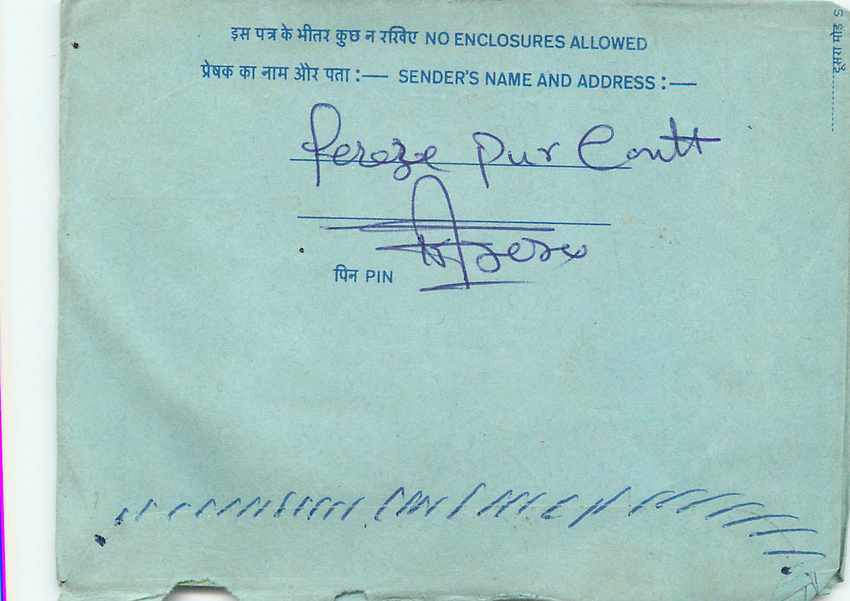 इस पत्र के भीतर कुछ न रखिए NO ENCLOSURES ALLOWED
प्रेषक का नाम और पता :— SENDER'S NAME AND ADDRESS :—
ferozepur Cantt
पिन PIN
दूसरा मोड़ S